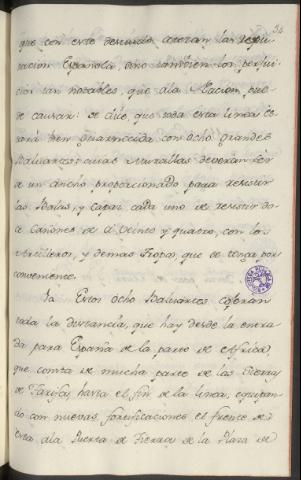 que con este descuido acotan la repu-
tacion Española, sino tambien los perjui-
cios tan notables, que ala Nacion pue-
de causar: se dice, que toda esta linea es-
tará bien guarnecida con ocho grandes
Baluartes: cuias Murallas deverán ser
de un ancho proporcionado para resistir
las Balas, y capaz cada uno de resistir do-
ce Cañones de á veinte y quatro, con los
Artilleros, y demas Tropa, que se tenga por
conveniente.
Estos ocho Baluartes cojeran
toda la distancia, que hay desde la entra-
da para España de la parte de Africa,
que consta de mucha parte de las tierras
de Tarifa, hasta el fin de la linea,
do con nuevas fortificaciones el frente de
esta ala Puerta de Tierra de la Plaza de